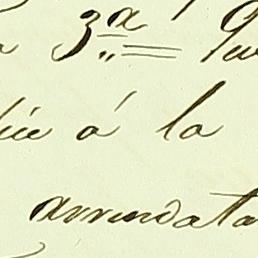 3ª Que
á la
arrendata